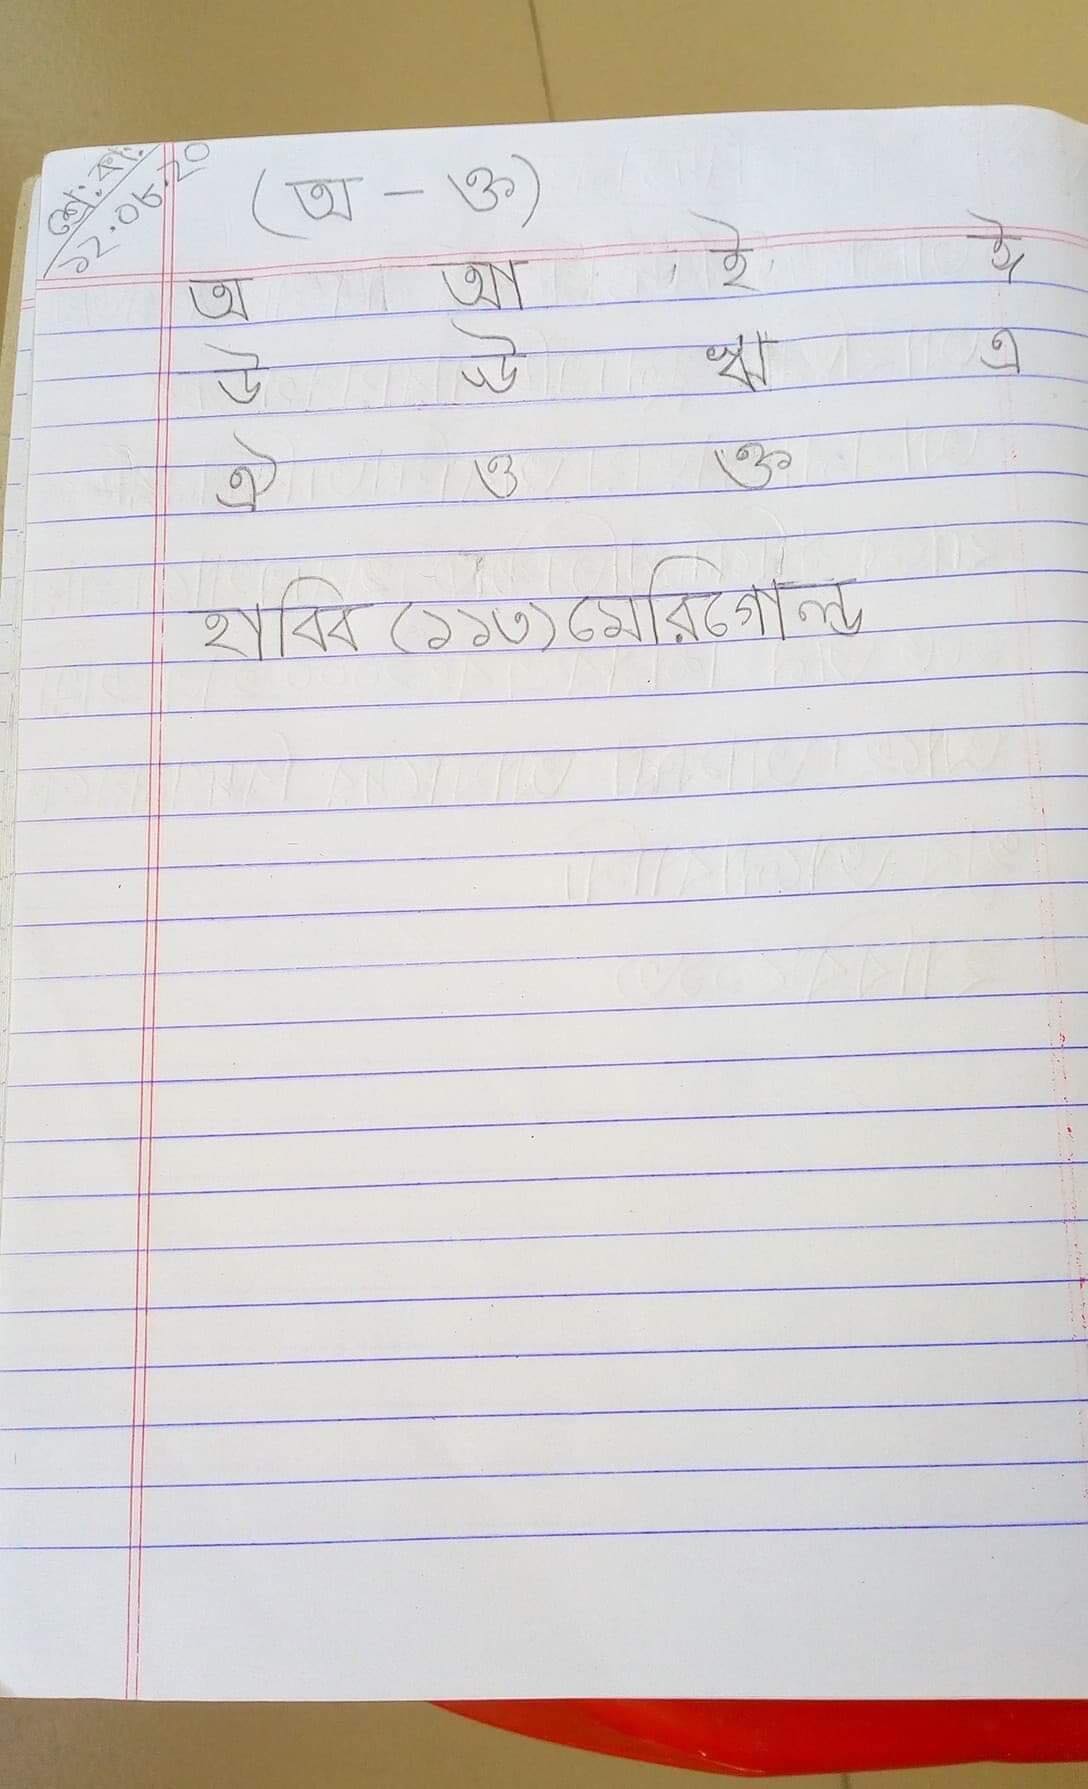 শ্রে. কা.
১২.০৮.২০
(অ - ঔ)
অ আ ই ঈ
উ ঊ ঋ এ
ঐ ও ঔ
হাবিব (১১৩) মেরিগোল্ড